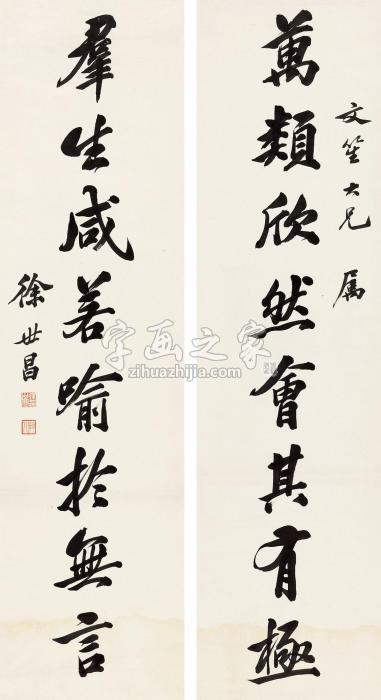 文笙大兄属
萬類欣然會其有極
羣生咸若喻於無言
徐世昌
字画之家
zihuazhijia.com